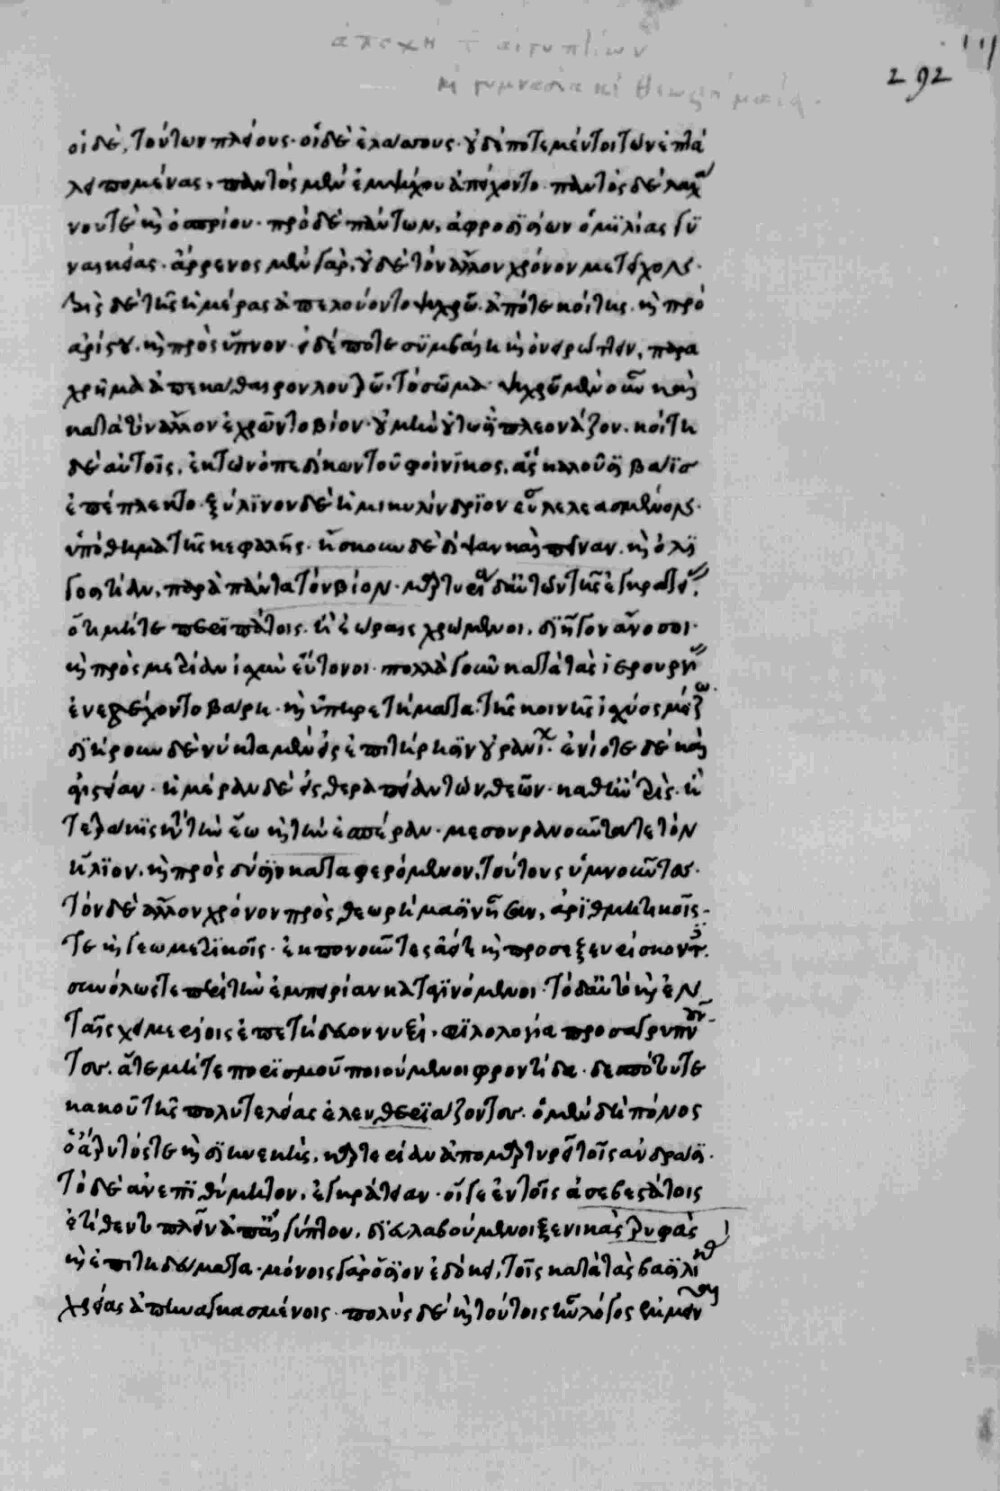 ἀποχὴ τ αἰγυπτίων
κὶ γυμνασία κὶ θεωρήματα
292
οἱ δὲ, τούτων πλείους· οἱ δὲ ἐλάσσους· οὐδέποτε μέντοι τῶν ἑπτὰ
λειπομένας· παντὸς μὲν ἐμψύχου ἀπείχοντο· παντὸς δὲ λαχά
νου τὲ κὶ ὀσπρίου· πρὸ δὲ πάντων, ἀφροδισίων ὁμιλίας γυ
ναικείας· ἄρρενος μὲν γὰρ, οὐδὲ τὸν ἄλλον χρόνον μετεῖχον·
τρὶς δὲ τῆς ἡμέρας ἀπελούοντο ψυχρῶ· ἀπό τε κοίτης· κὶ πρὸ
ἀρίστου· κὶ πρὸς ὕπνον· εἰ δέ ποτε συμβαίη κὶ ὀνειρώττειν, παρα
χρῆμα ἀπεκάθαιρον λουτρῶ τὸ σῶμα· ψυχρῶ μὲν οὖν καὶ
κατὰ τὸν ἄλλον ἐχρῶντο βίον· οὐ μὴν οὕτωσι πλεονάζον· κοίτη
δὲ αὐτοῖς, ἐκ τῶν σπαδίκων τοῦ φοίνικος, ἃς καλοῦσι βάϊς
ἐπέπλεκτο· ξύλινον δὲ ἡμικυλίνδριον εὖ λελεασμένον·
ὑπόθημα τῆς κεφαλῆς· ἤσκουν δὲ δίψαν καὶ πεῖναν· κὶ ὀλι
γοσιτίαν, παρὰ πάντα τὸν βίον· μαρτυρία δ' αὐτῶν τῆς ἐγκρατείας
ὅτι μήτε περιπάτοις· ἢ ἐώραις χρώμενοι, διῆγον ἄνοσοι·
κὶ πρὸς μετρίαν ἰσχὺν εὔτονοι· πολλὰ γοῦν κατὰ τὰς ἱερουργί
ἐνεδέχοντο βάρη· κὶ ὑπηρετήματα τῆς κοινῆς ἰσχύος μείζω·
διῄρουν δὲ νύκτα μὲν εἰς ἐπιτήρησιν οὐρανί· ἐνίοτε δὲ καὶ
ἁγιστείαν· ἡμέραν δὲ εἰς θεραπείαν τῶν θεῶν· καθ' ἣν τρὶς· ἢ
τετράκις κατὰ τὴν ἕω κὶ τὴν ἑσπέραν· μεσουρανοῦντά τε τὸν
ἥλιον· κὶ πρὸς δύσιν καταφερόμενον, τούτους ὑμνοῦντες·
τὸν δὲ ἄλλον χρόνον πρὸς θεωρήμασιν ἦσαν, ἀριθμητικοῖς
τε κὶ γεωμετρικοῖς· ἐκπονοῦντες ἀεί τι κὶ προσεξευρίσκοντες·
συνόλως τε περὶ τὴν ἐμπειρίαν καταγινόμενοι· τὸ δ' αὐτὸ κὶ ἐν
ταῖς χειμεριναῖς ἐπετήδευον νυξὶ· φιλολογία προσαγρυπν
τες· ἅτε μήτε πορισμοῦ ποιούμενοι φροντίδα· δεσπότου τε
κακοῦ τῆς πολυτελείας ἐλευθεριάζοντες· ὁ μὲν δὴ πόνος
ὁ ἄτρυτός τε κὶ διηνεκὴς, καρτερίαν ἀπομαρτυρεῖ τοῖς ἀνδράσι·
τὸ δὲ ἀνεπιθύμητον, ἐγκράτειαν· οἵ γε ἐν τοῖς ἀσεβεστάτοις
ἐτίθεντο πλεῖν ἀπ' αἰγύπτου, διευλαβούμενοι ξενικὰς τρυφὰς
κὶ ἐπιτηδεύματα· μόνοις γὰρ ὅσιον ἐδόκει, τοῖς κατὰ τὰς βασιλικ
χρείας ἀπηναγκασμένοις· πολὺς δὲ κὶ τούτοις ἦν λόγος ἐμμένειν